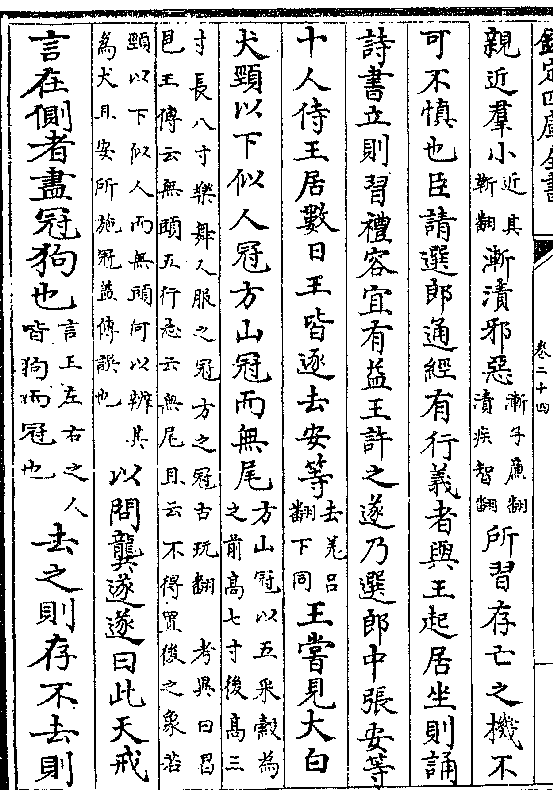 欽定四庫全書 卷二十四
親近羣小近其靳翻漸漬邪惡漸子㢘翻漬疾智翻所習存亡之機不
可不慎也臣請選郎通經有行義者與王起居坐則誦
詩書立則習禮容宜有益王許之遂乃選郎中張安等
十人侍王居數日王皆逐去安等去羗呂翻下同王嘗見大白
犬頸以下似人冠方山冠而無尾方山冠以五采縠為之前高七寸後高三
寸長八寸樂舞人服之冠方之冠古玩翻 考異曰昌邑王傳云無頭五行志云無尾且云不得置後之象若
頸以下似人而無頭何以辨其為犬且安所施冠盖傳誤也以問龔遂遂曰此天戒
言在側者盡冠狗也言王左右之人皆狗而冠也去之則存不去則